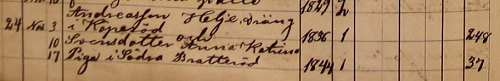 Andreasson Helje Dräng 1829
24 Nov 3 i Koperöd och 1836 1 248
10 Svensdotter Anna Katrina
17 Piga i Södra Bratteröd 1844 1 37